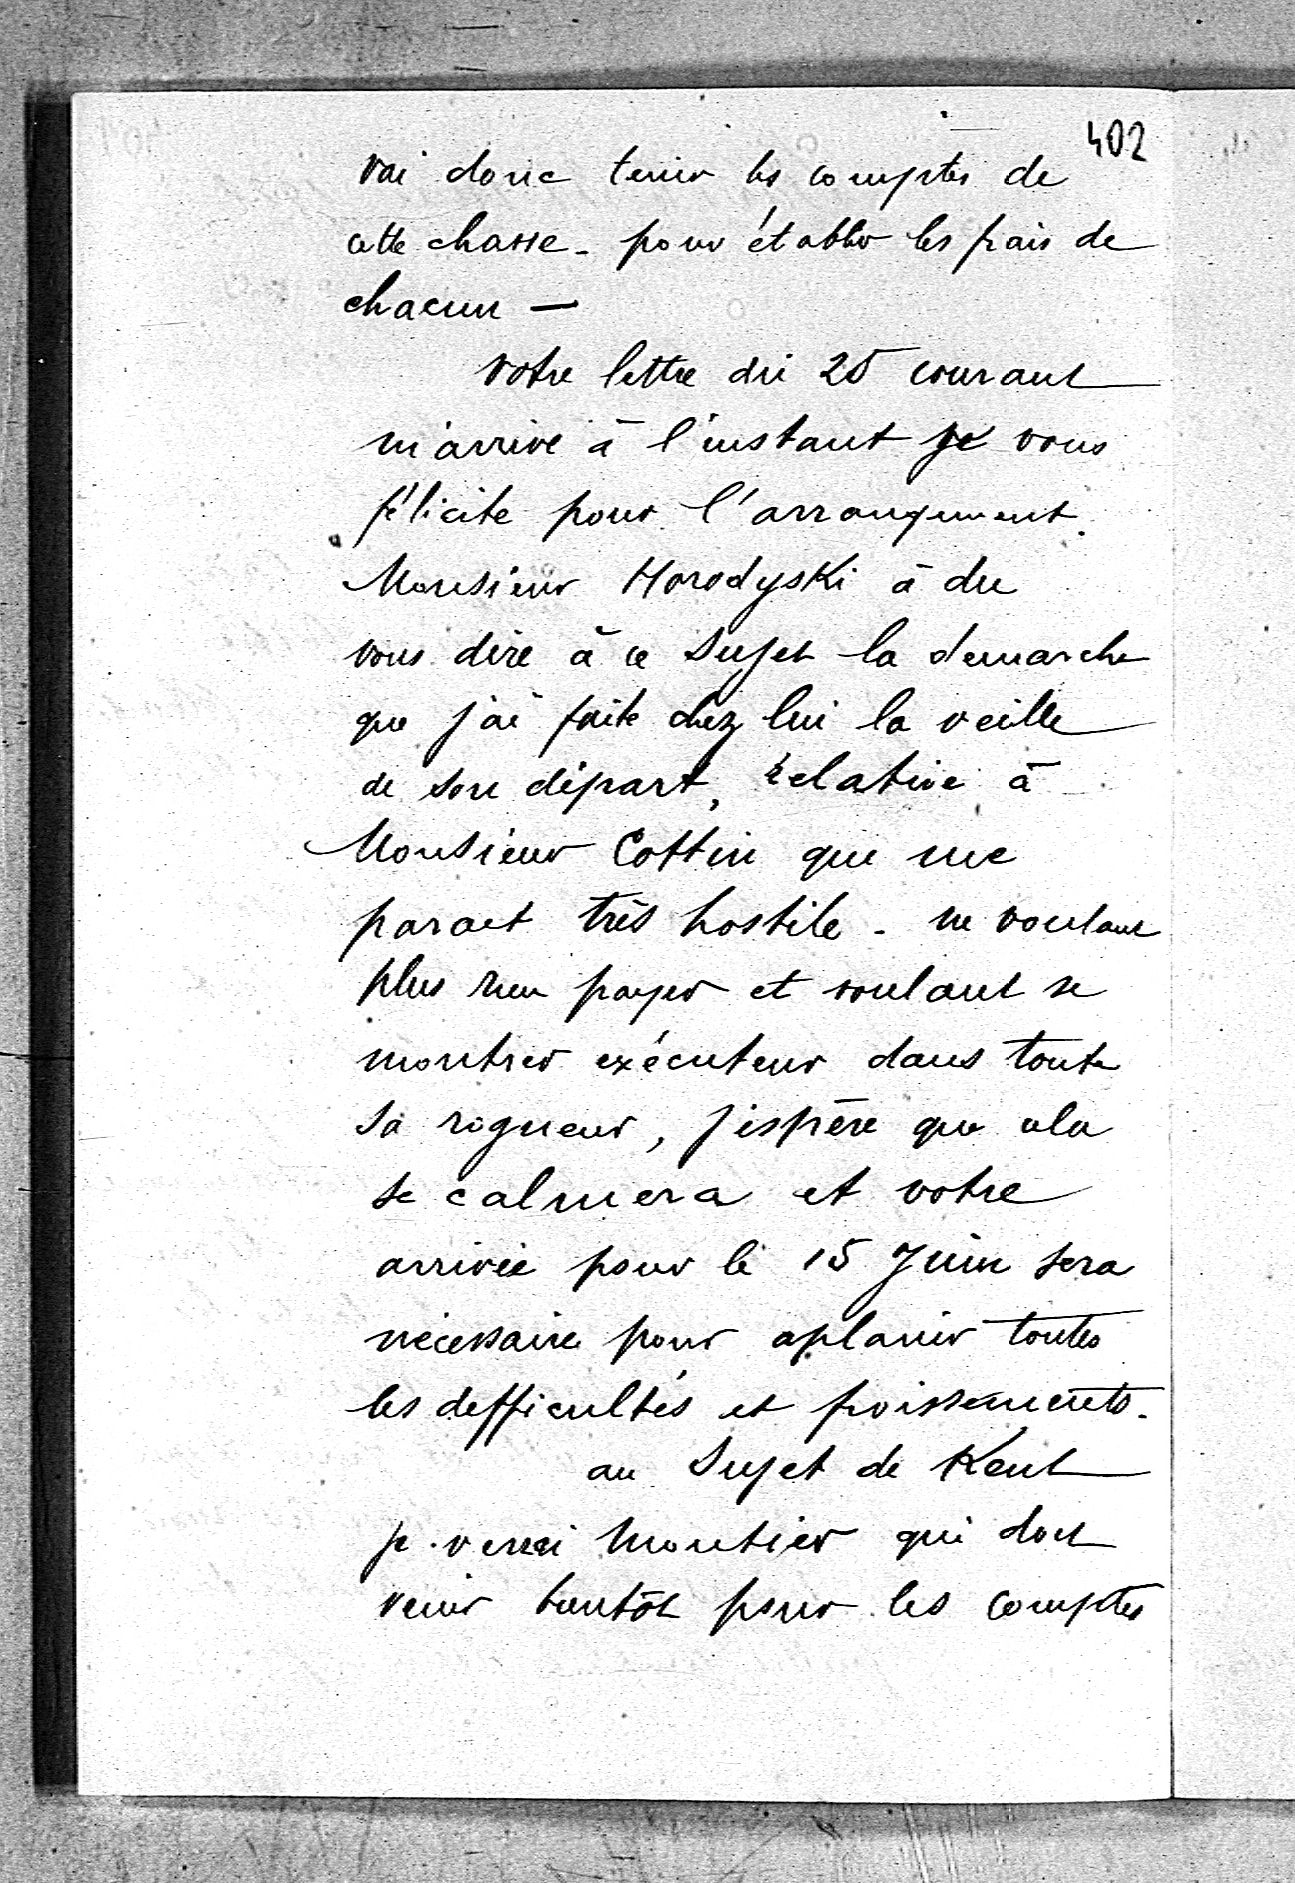 402
vai donc tenir les comptes de
cette chasse - pour établir les frais de
chacun —
votre lettre du 25 courant
m'arrive à l'instant je vous
félicite pour l'arrangement.
Monsieur Horodyski à du
vous dire à ce Sujet la demarche
que j'ai faite chez lui la veille
de son départ, relative à
Monsieur Cottin qui me
parait très hostile - ne voulant
plus rien payer et voulant se
montrer exécuteur dans toute
sa rigueur, j'espère que cela
se calmera et votre
arrivée pour le 15 Juin sera
nécessaire pour aplanir toutes
les difficultés et froissements.
au Sujet de Kent
je verrai Montier qui doit
venir bientôt pour les comptes